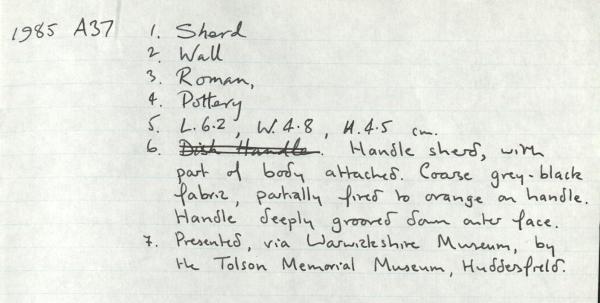 1985 A37 1. Sherd
2. Wall
3. Roman,
4. Pottery
5. L. 6.2, W. 4.8, H. 4.5 cm.
6. Dish Handle. Handle sherd, with
part of body attached. Coarse grey-black
fabric, partially fired to orange on handle.
Handle deeply grooved down outer face.
7. Presented, via Warwickshire Museum, by
the Tolson Memorial Museum, Huddersfield.